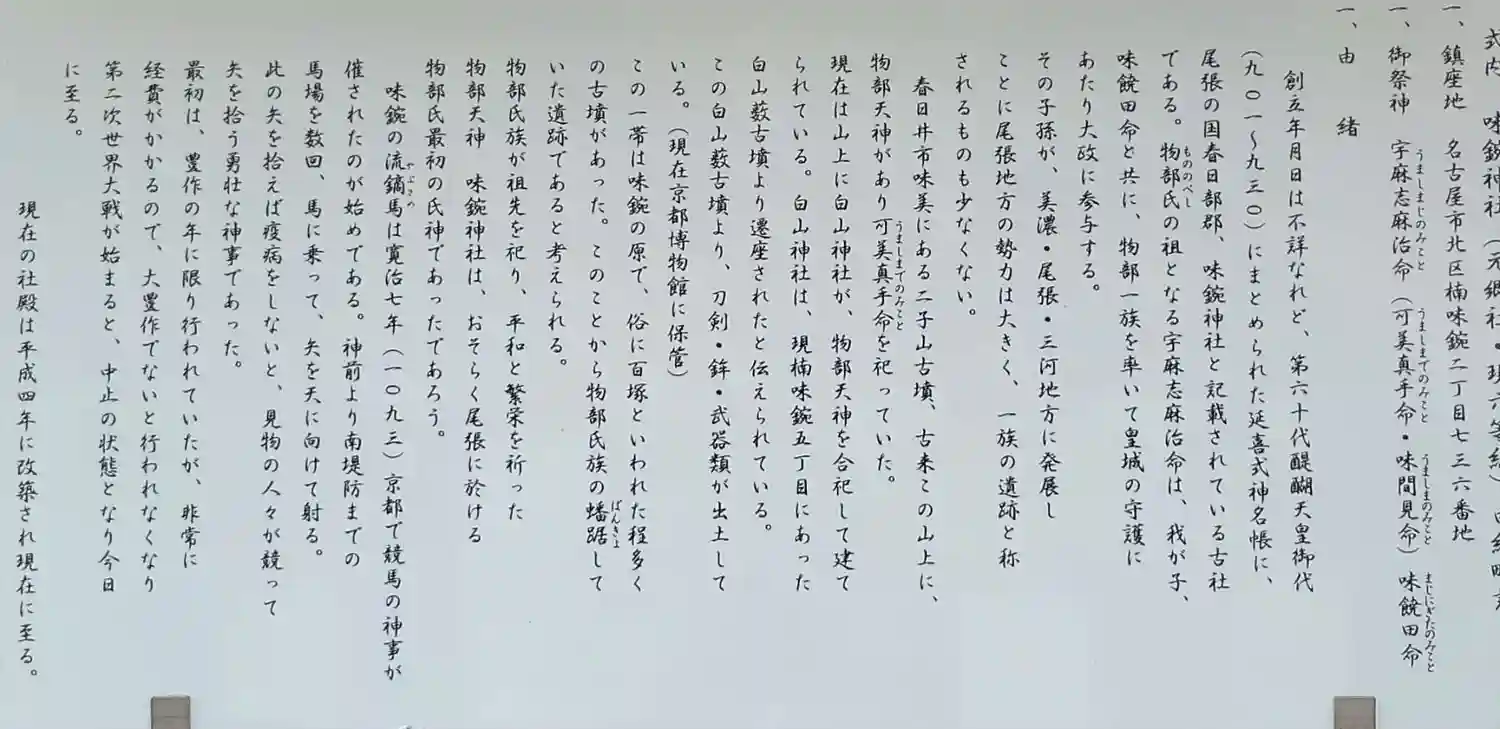 式内 味鋺神社（元郷社・現六等級）由緒略記
一、鎮座地 名古屋市北区楠味鋺二丁目七三六番地
一、御祭神 宇麻志麻治命（可美真手命・味間見命）味饒田命
うましまじのみこと うましまでのみこと うましまのみこと まじにぎたのみこと
一、由 緒
創立年月日は不詳なれど、第六十代醍醐天皇御代
（九〇一〜九三〇）にまとめられた延喜式神名帳に、
尾張の国春日部郡、味鋺神社と記載されている古社
である。物部氏の祖となる宇麻志麻治命は、我が子、
もののべし
味饒田命と共に、物部一族を率いて皇城の守護に
あたり大政に参与する。
その子孫が、美濃・尾張・三河地方に発展し
ことに尾張地方の勢力は大きく、一族の遺跡と称
されるものも少なくない。
春日井市味美にある二子山古墳、古来この山上に、
物部天神があり可美真手命を祀っていた。
うましまでのみこと
現在は山上に白山神社が、物部天神を合祀して建て
られている。白山神社は、現楠味鋺五丁目にあった
白山薮古墳より遷座されたと伝えられている。
この白山薮古墳より、刀剣・鉾・武器類が出土して
いる。（現在京都博物館に保管）
この一帯は味鋺の原で、俗に百塚といわれた程多く
の古墳があった。このことから物部氏族の蟠踞して
ばんきょ
いた遺跡であると考えられる。
物部氏族が祖先を祀り、平和と繁栄を祈った
物部天神 味鋺神社は、おそらく尾張に於ける
物部氏最初の氏神であったであろう。
味鋺の流鏑馬は寛治七年（一〇九三）京都で競馬の神事が
やぶさめ
催されたのが始めである。神前より南堤防までの
馬場を数回、馬に乗って、矢を天に向けて射る。
此の矢を拾えば疫病をしないと、見物の人々が競って
矢を拾う勇壮な神事であった。
最初は、豊作の年に限り行われていたが、非常に
経費がかかるので、大豊作でないと行われなくなり
第二次世界大戦が始まると、中止の状態となり今日
に至る。
現在の社殿は平成四年に改築され現在に至る。